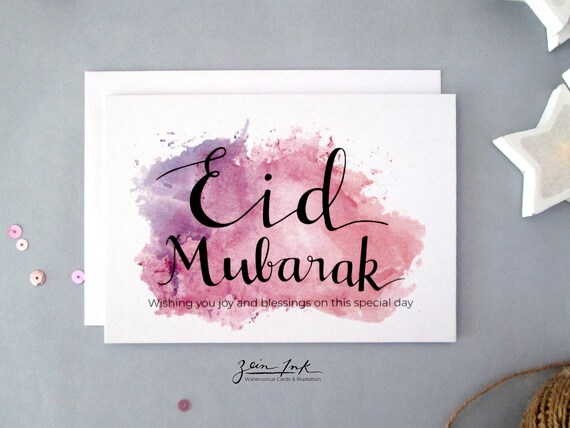 Eid
Mubarak
Wishing you joy and blessings on this special day
Zein Ink
Watercolour Cards & Illustration